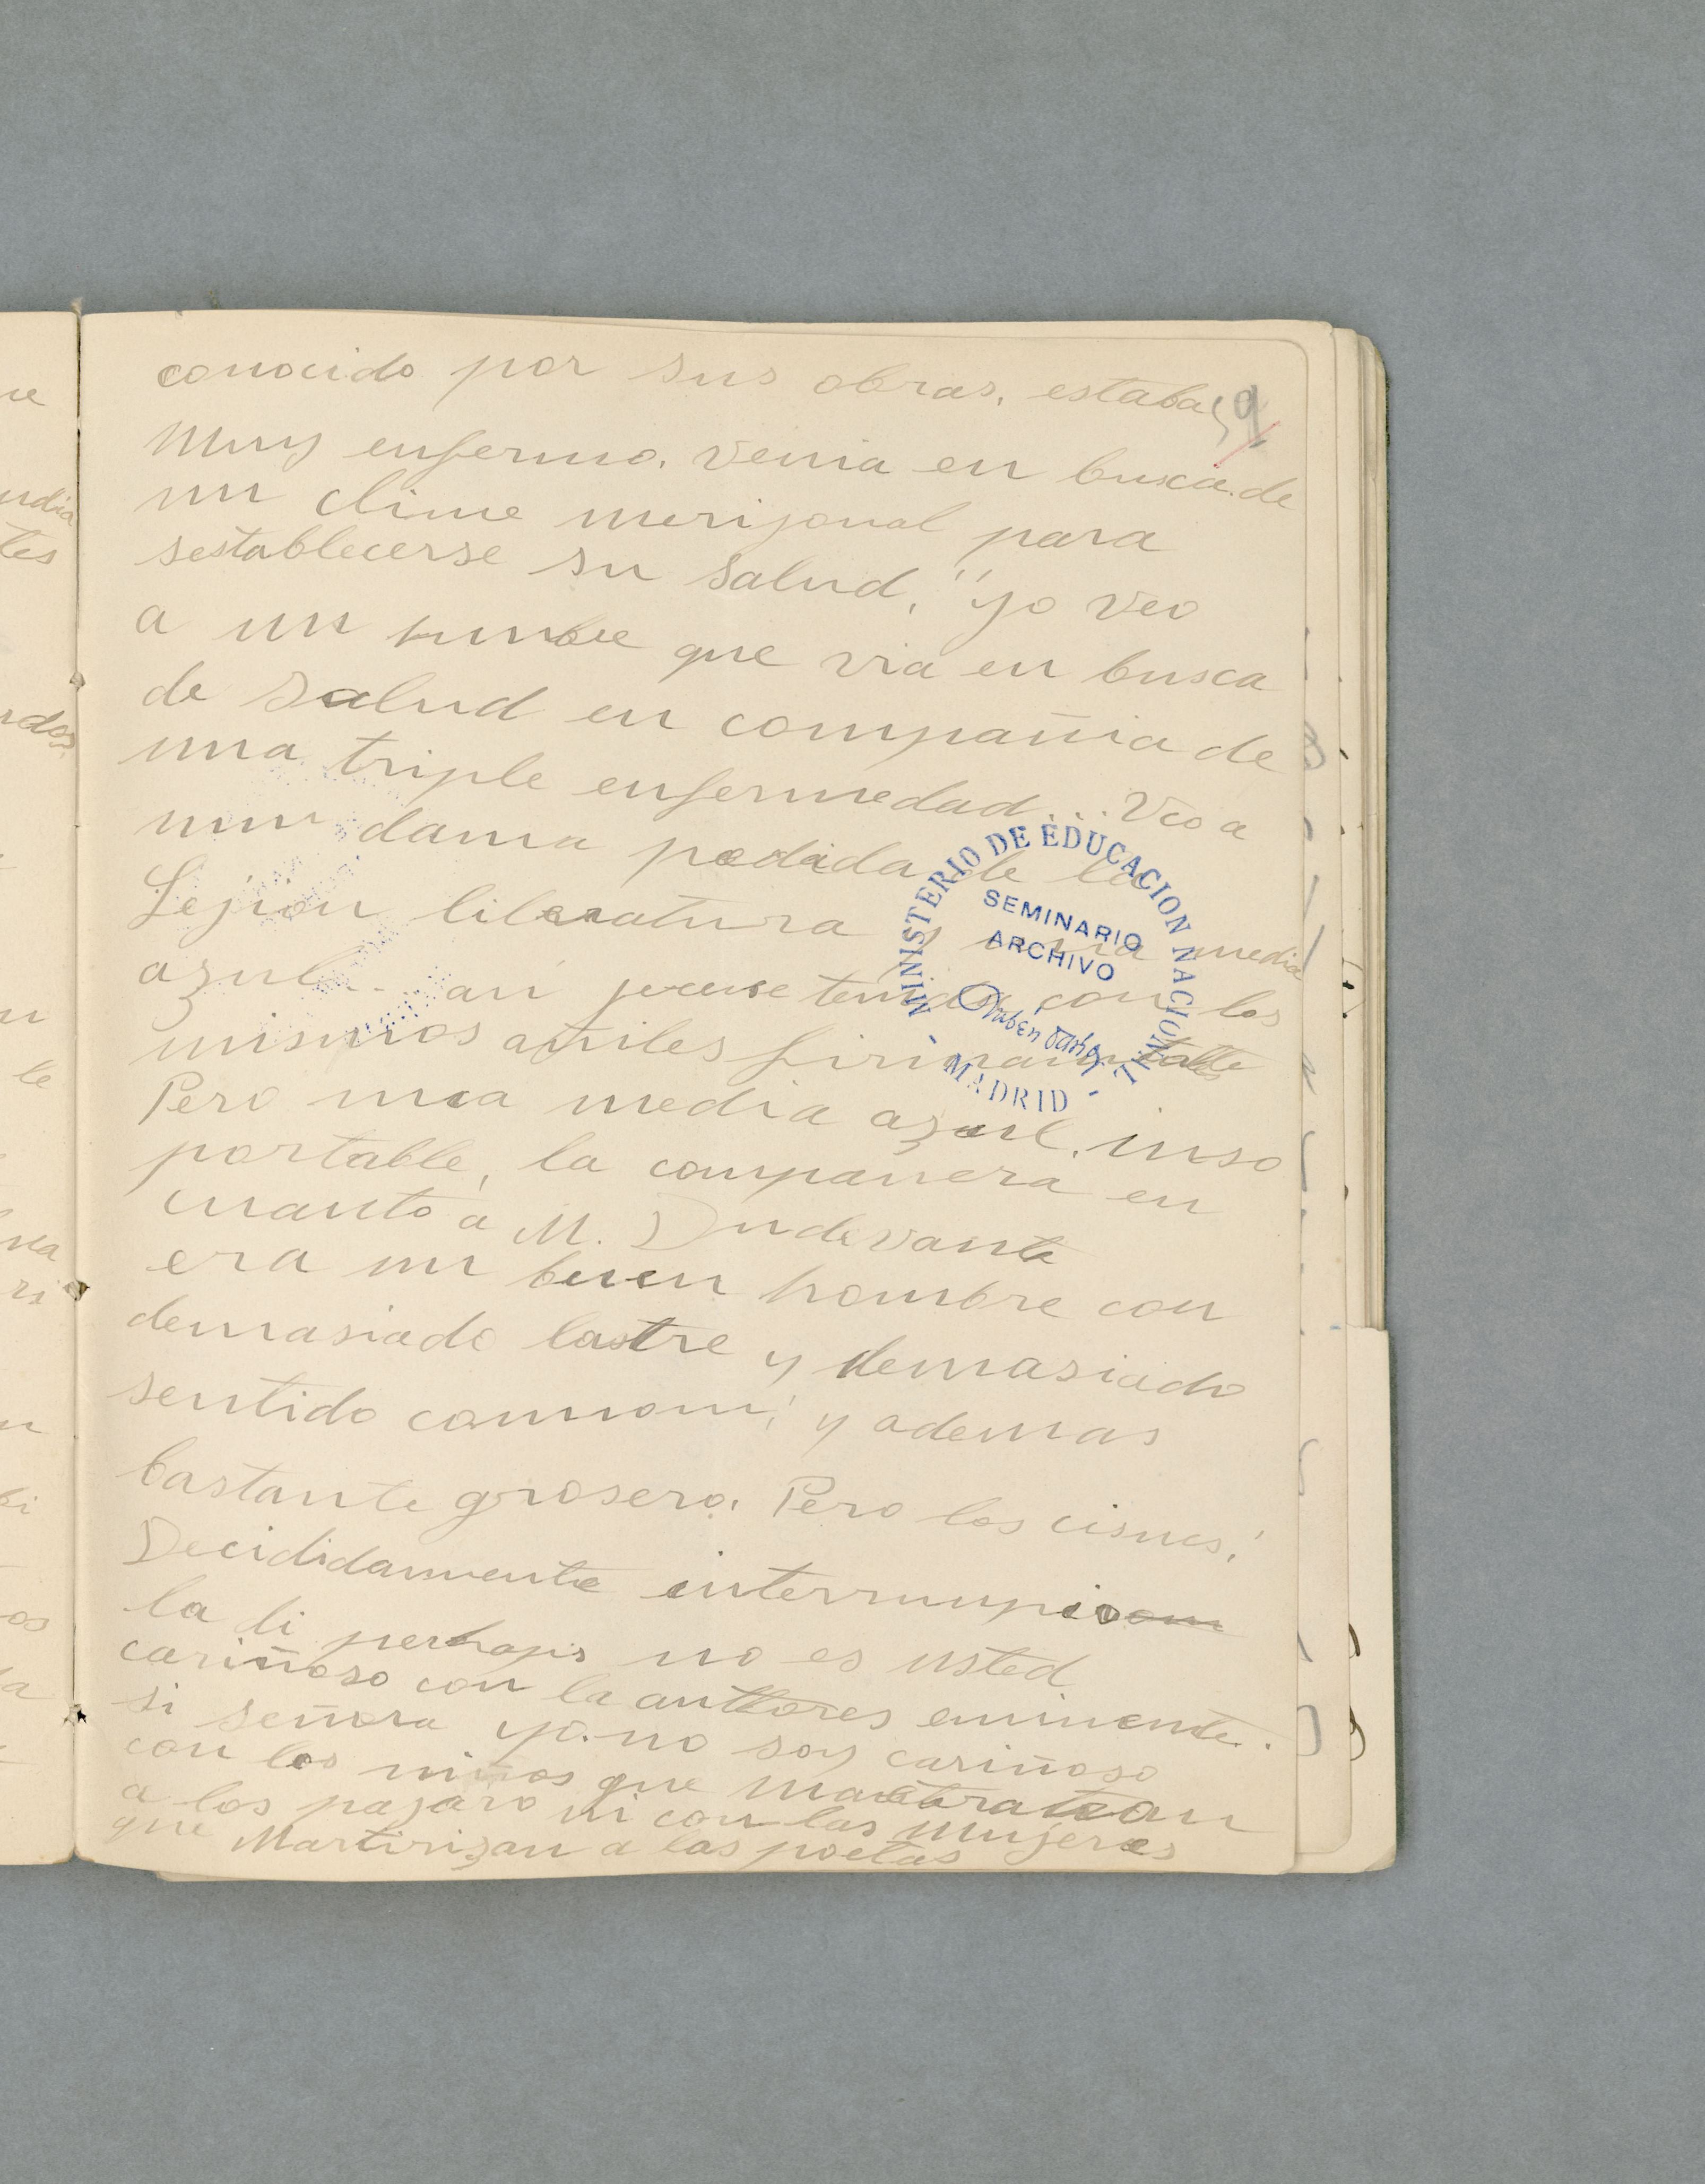 conocido por sus obras, estaba
9
muy enfermo. Venia en busca de
un clime merijonal para
sestablecerse su salud, "yo veo
a un humbre que via en busca
de salud en compañia de
una triple enfermedad... Veo a
una dama pedida de la
Lejion literatura y una media
azul...
mismos añiles
Pero una media azul, inso
portable, la compañera en
cuanto a M. Dudevante
era un buen hombre con
demasiado lastre y demasiado
sentido comun; y ademas
bastante grosero. Pero los cisnes!
Decididamente interrumpio
la li perhaps no es usted
cariñoso con la auttores eminente.
si señora yo no soy cariñoso
con los niños que maltratan
a los pajaro ni con las mujeres
que Martirizan a los poetas
MINISTERIO DE EDUCACION NACIONAL
SEMINARIO
ARCHIVO
Rubén Darío
- MADRID -